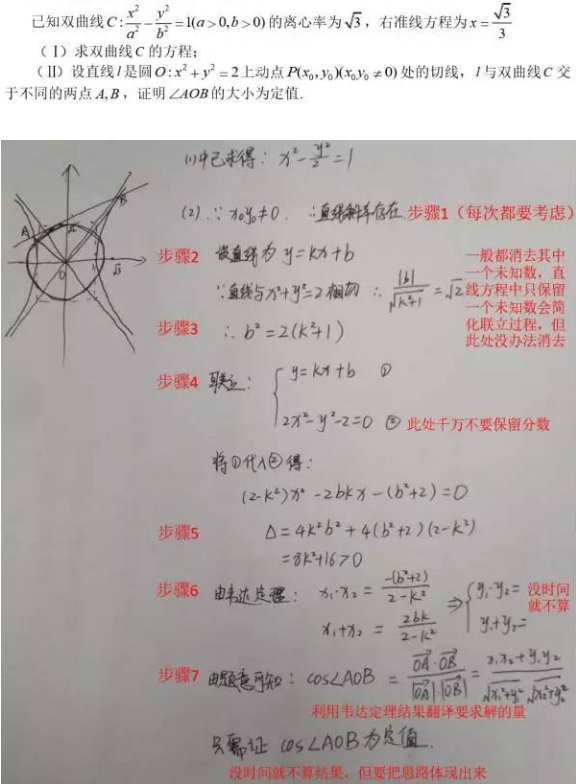 已知双曲线C:x²/a² - y²/b² =1(a>0,b>0)的离心率为√3，右准线方程为x=√3/3
（Ⅰ）求双曲线C的方程;
（Ⅱ）设直线l是圆O:x²+y²=2上动点P(x₀,y₀)(x₀y₀≠0)处的切线，l与双曲线C交
于不同的两点A,B，证明∠AOB的大小为定值.
(1)中已求得: x²-y²/2=1
(2) ∵ x₀y₀≠0. ∴直线斜率存在 步骤1（每次都要考虑）
步骤2 设直线为 y=kx+b
∵直线与x²+y²=2相切 ∴ |b|/√(k²+1) =√2
一般都消去其中
一个未知数，直
线方程中只保留
一个未知数会简
化联立过程，但
此处没办法消去
步骤3 ∴ b²=2(k²+1)
步骤4 联立: { y=kx+b ①
2x²-y²-2=0 ② 此处千万不要保留分数
将①代入②得:
(2-k²)x²-2bkx-(b²+2)=0
步骤5 Δ=4k²b²+4(b²+2)(2-k²)
=8k²+16>0
步骤6 由韦达定理: x₁·x₂= -(b²+2)/2-k² ⇒ { y₁·y₂= 没时间
就不算
x₁+x₂ = 2bk/2-k² y₁+y₂=
步骤7 由题意可知: cos∠AOB = OA·OB/|OA|·|OB| = x₁x₂+y₁y₂/√x₁²+y₁² √x₂²+y₂²
利用韦达定理结果翻译要求解的量
只需证 cos∠AOB为定值.
没时间就不算结果，但要把思路体现出来
A
B
O
√3